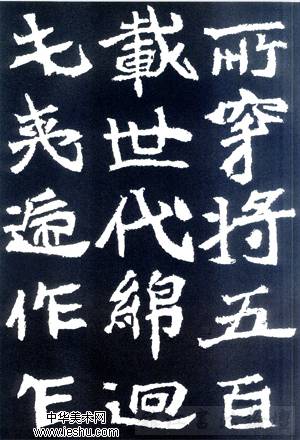 所穿将五百
載世代綿迴
屯夷遞作乍
中华美术网
www.ieshu.com